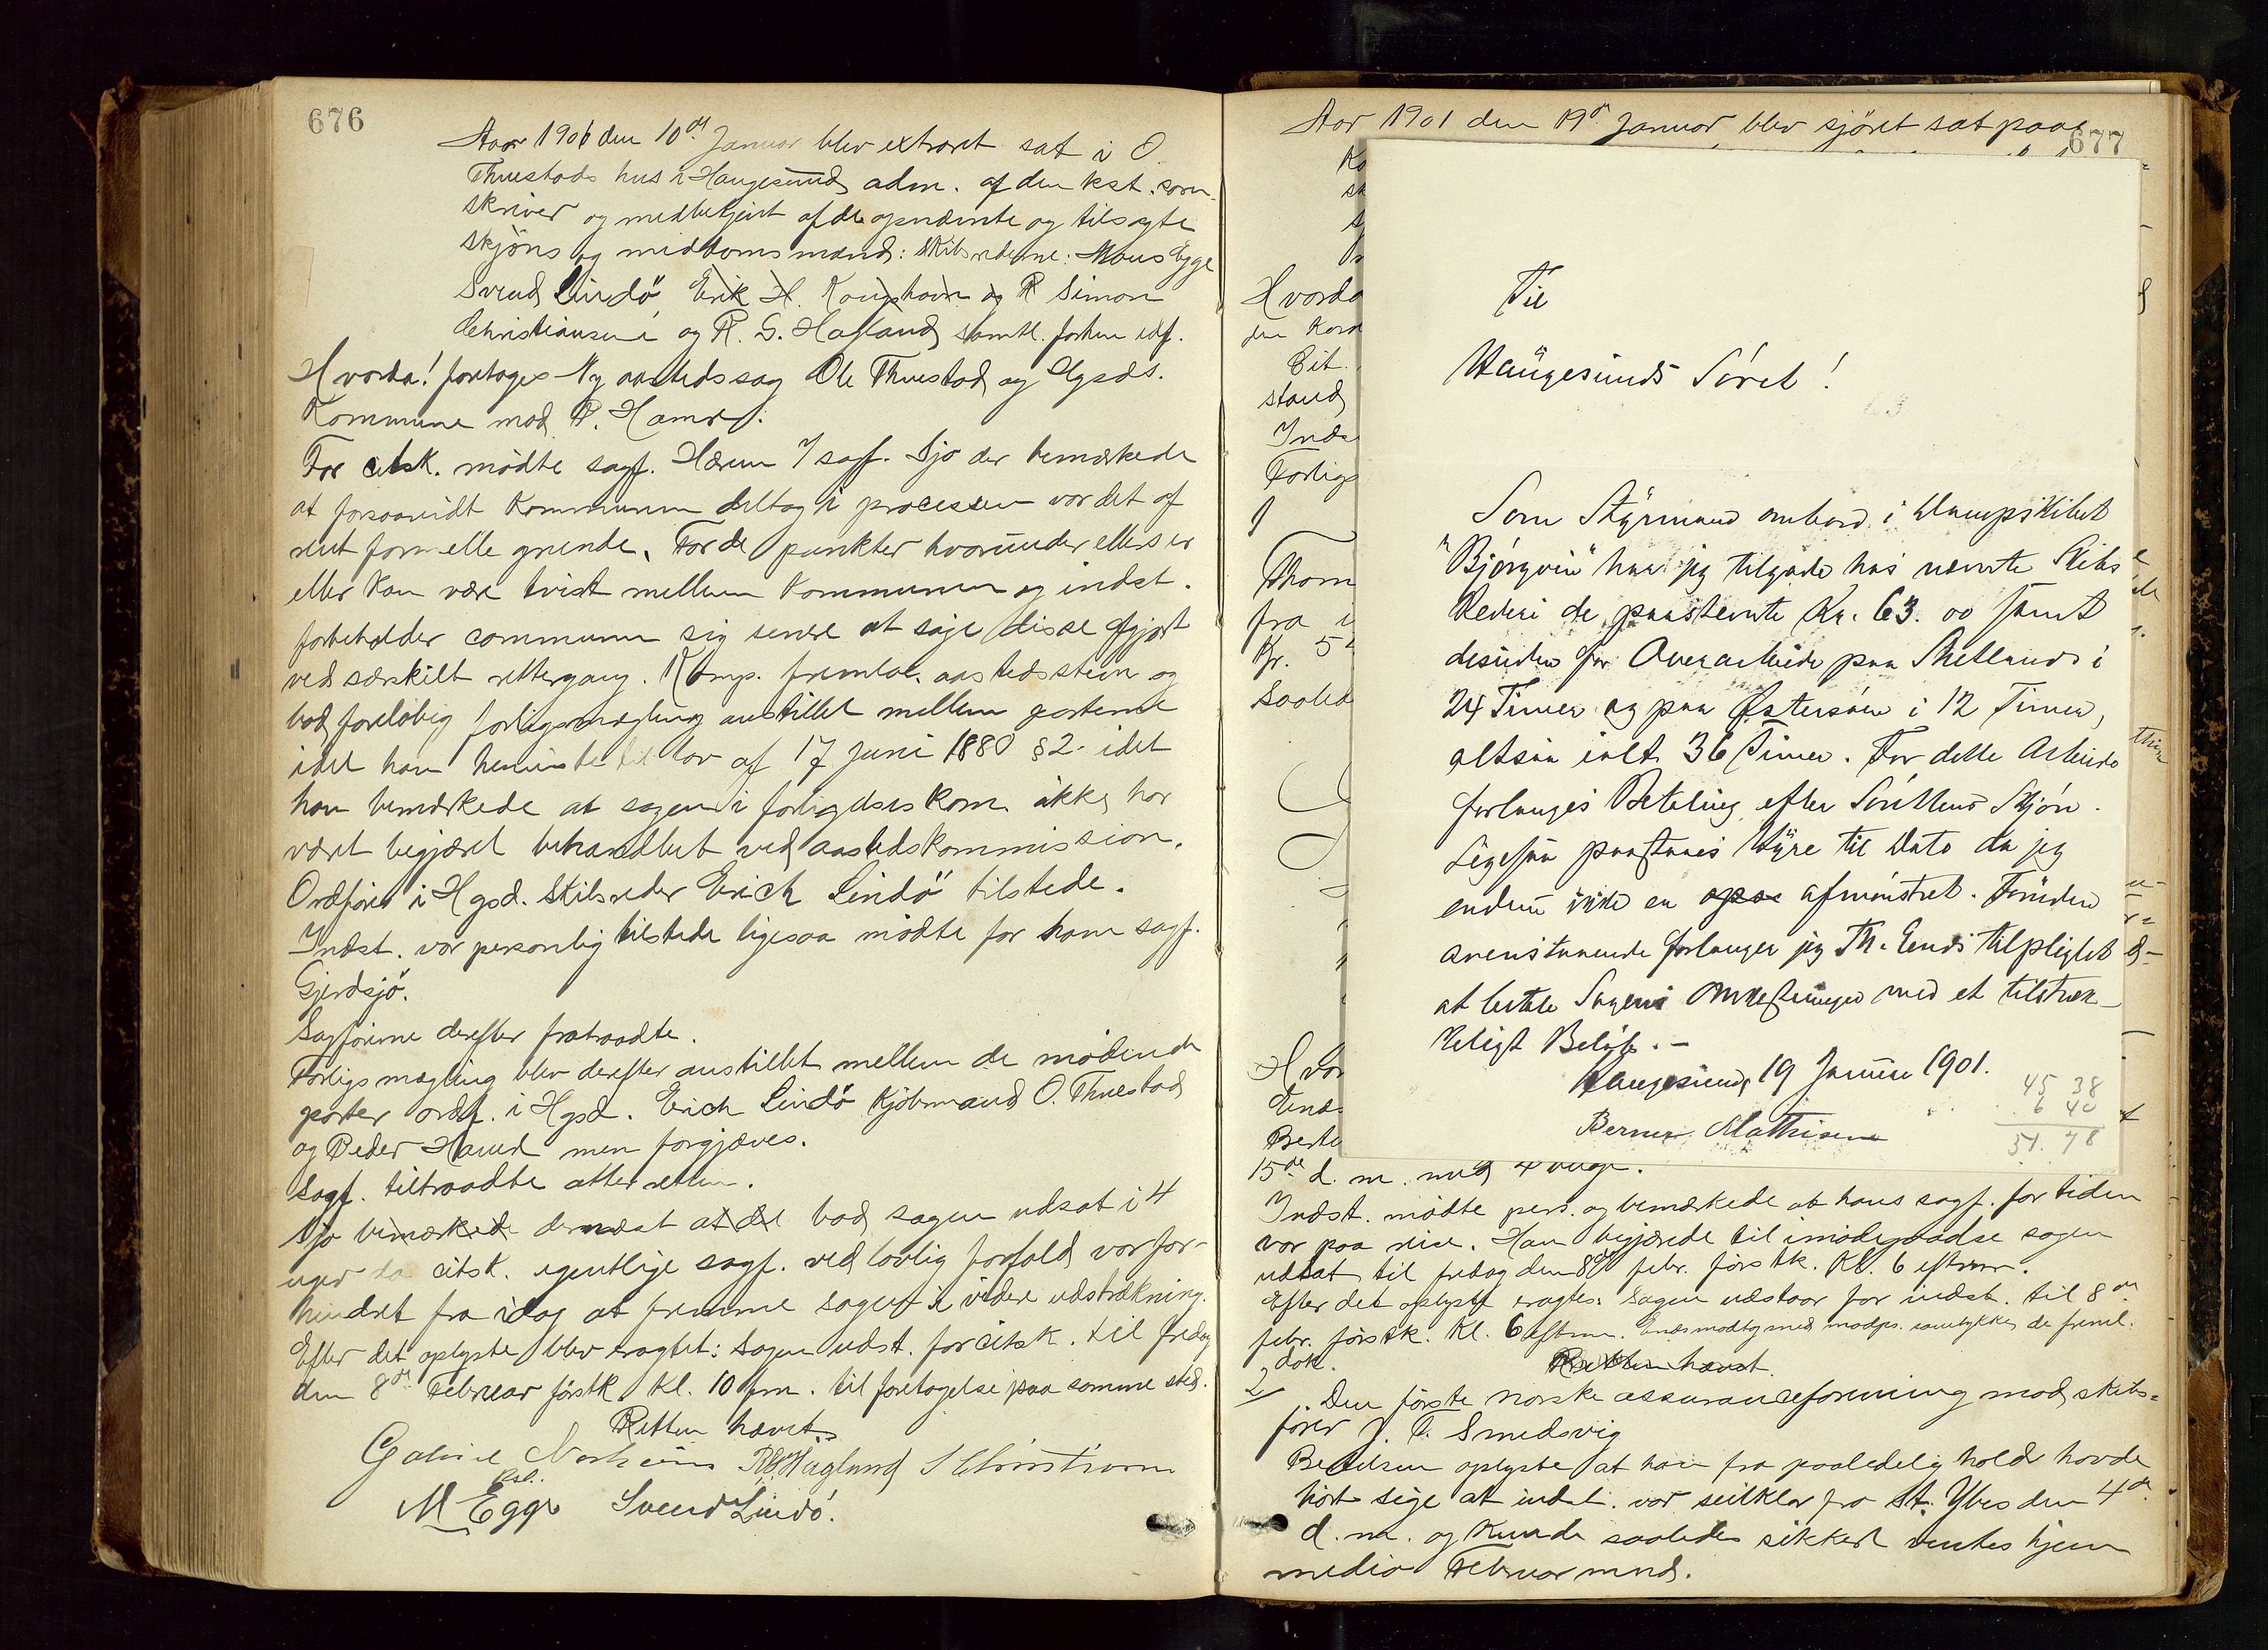 676
Aaar 1901 den 10de Januar blev extraret sat i O.
Thuestads hus i Haugesund adm. af den kst. soren-
skriver og medbetjent af de opnævnte og tilsagte
skjöns og meddomsmænd: Skibsrederne: Mons Egge
Svend Lindö Erik H. Kongshavn og R Simon
Christiansen og R. G. Hagland samtl. forhen edf.
Hvorda! foretoges Ny aastedssag Ole Thuestad og Hgsds.
Kommune mod P. Hamre.
For citsk. mödte sagf. Hærum / sagf. Sjo der bemærkede
at forsaavidt Kommunen deltog i processen var det af
rent formelle grunde. For de punkter hvorunder ellers er
eller kan være tvist mellem Kommunen og indst.
forbeholder communen sig senere at söge disse afgjort
ved særskilt rettergang. Komp. fremlæ. aastedsstevn og
bad foreløbig forligsmægling anstillet mellem parterne
idet han henviste til lov af 17 juni 1880 § 2. idet
han bemærkede at sagen i forligelseskom. ikke har
været begjæret behandlet ved aastedskommission.
Ordförer i Hgsd. Skibsreder Erich Lindö tilstede.
Indst. var personlig tilstede ligesaa mödte for ham sagf.
Gjerdsjö.
Sagförerne derefter fratraadte.
Forligsmægling blev derefter anstillet mellem de mödende
parter ordf. i Hgsd. Erich Lindö Kjöbmand O. Thuestad
og Peder Hamre men forgjæves.
Sagf. tiltraadte atter retten.
Sjo bemærkede dernæst at de bad sagen udsat i 4
uger da citsk. egentlige sagf. ved lovlig forfald var for-
hindret fra idag at fremme sagen i videre udstrækning.
Efter det oplyste blev eragtet: Sagen udst. for citsk. til fredag
den 8de Februar förstk. kl. 10 fm. til foretagelse paa samme sted.
Retten hævet.
Gabriel Norheim R G Hagland S Christiansen
kst.
M Egge Svend Lindö.
Aar 1901 den 19de Januar blev sjöret sat paa
677
Ko
sk
Hvorda
den Kons
Cit.
stand
Inds
Forligs
Thom
fra
Kr. 5
Saaled
Hvor
Ends
Berte
Til
Haugesunds Söret!
Som Styrmand ombord i Dampskibet
"Björgvin" har jeg tilgode hos nævnte Skibs
Rederi de paastevnte Kr. 63.00 samt
desuden for Overarbeide paa Shetland i
24 Timer og paa Østersöen i 12 Timer,
altsaa ialt 36 Timer. For dette Arbeide
forlanges Betaling efter Sörettens Skjön.
Ligesaa paastaaes Hyre til Dato da jeg
endnu ikke er afmönstret. Foruden
ovenstaaende forlanger jeg Th. Ends tilpligtet
at betale Sagens Omkostninger med et tilstræk-
keligt Belöb. -
Haugesund, 19 Januar 1901.
Berner Mathisen
45 38
6 40
51.78
15de d. m. med
Indst. mödte pers. og bemærkede at hans sagf. for tiden
var paa reise. Han begjærede til imödegaaelse sagen
udsat til fredag den 8de febr. förstk. Kl. 6 eftrm.
Efter det oplyste eragtes: Sagen udstaar for indst. til 8de
febr. förstk. Kl. 6 eftrm. Ends modtog med modps. samtykke de freml.
dok.
Retten hævet.
2/ Den förste norske assuranceforening mod skibs-
förer J. T. Smedsvig
Bertelsen oplyste at han fra paalidelig hold havde
hört sige at indst. var seilklar fra St. Ybes den 4de
d. m. og kunde saaledes sikkert ventes hjem
medio Februar mnd.